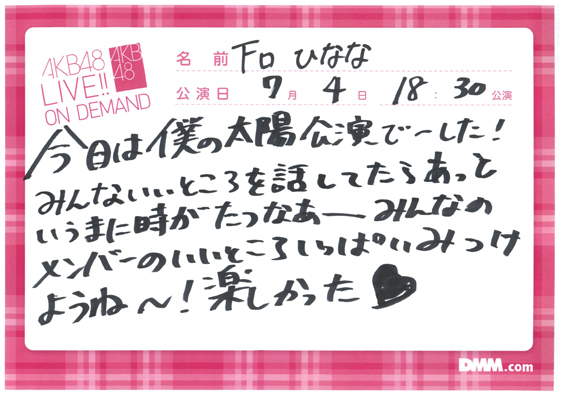 AKB48
LIVE!!
ON DEMAND
AKB
48
名前 下口ひなな
公演日 7月4日 18:30公演
今日は僕の太陽公演でーした!
みんないいところを話してたらあっと
いうまに時がたつなあーみんなの
メンバーのいいところいっぱいみつけ
ようね〜!楽しかった♥
DMM.com